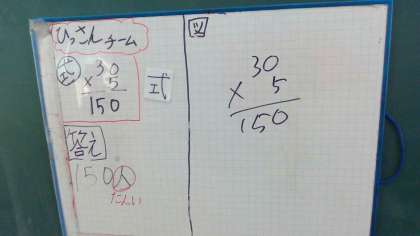 ひっさんチーム
式
30
×5
150
式
答え
150人
たんい
図
30
×5
150